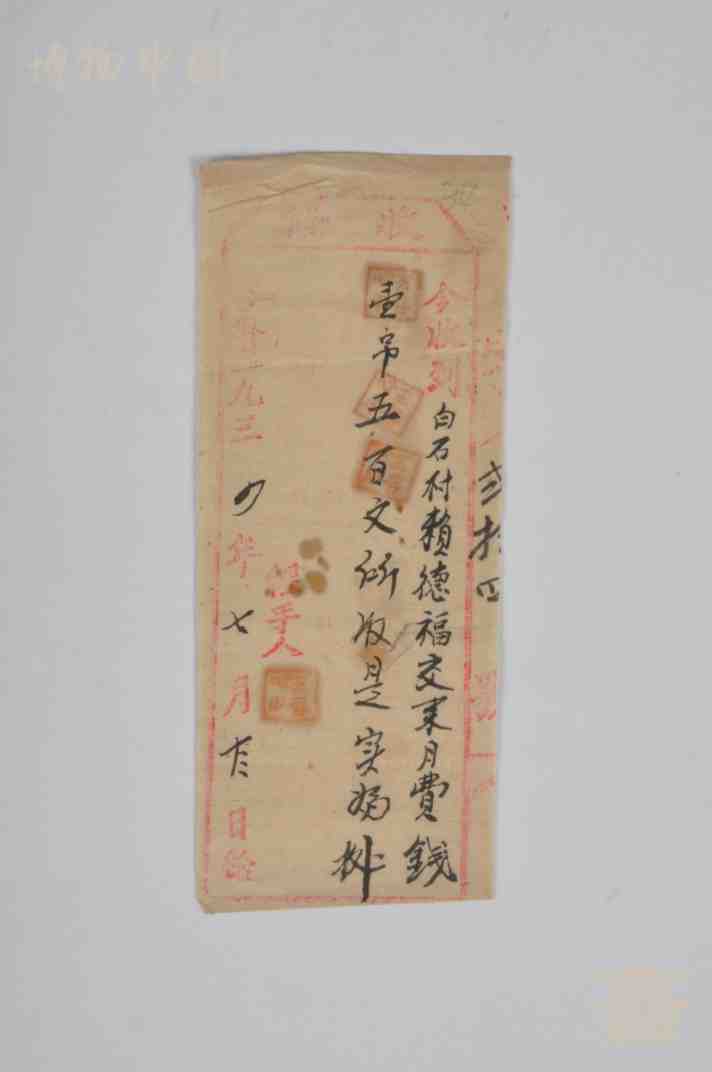 博物中国
收條
弍拾四號
今收到白石村賴德福交来月費錢
壹吊五百文所收是实為
經手人
九三四年七月日給